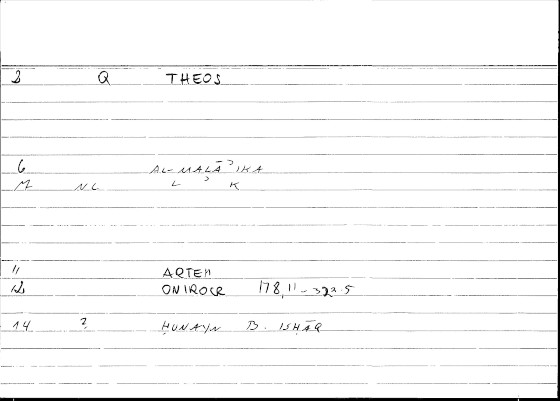 2 Q THEOS
6 AL-MALĀʾIKA
M NL L ʾ K
11 ARTEM
12 ONIROCR 178,11-323.5
14 2 ḤUNAYN B. ISḤĀQ